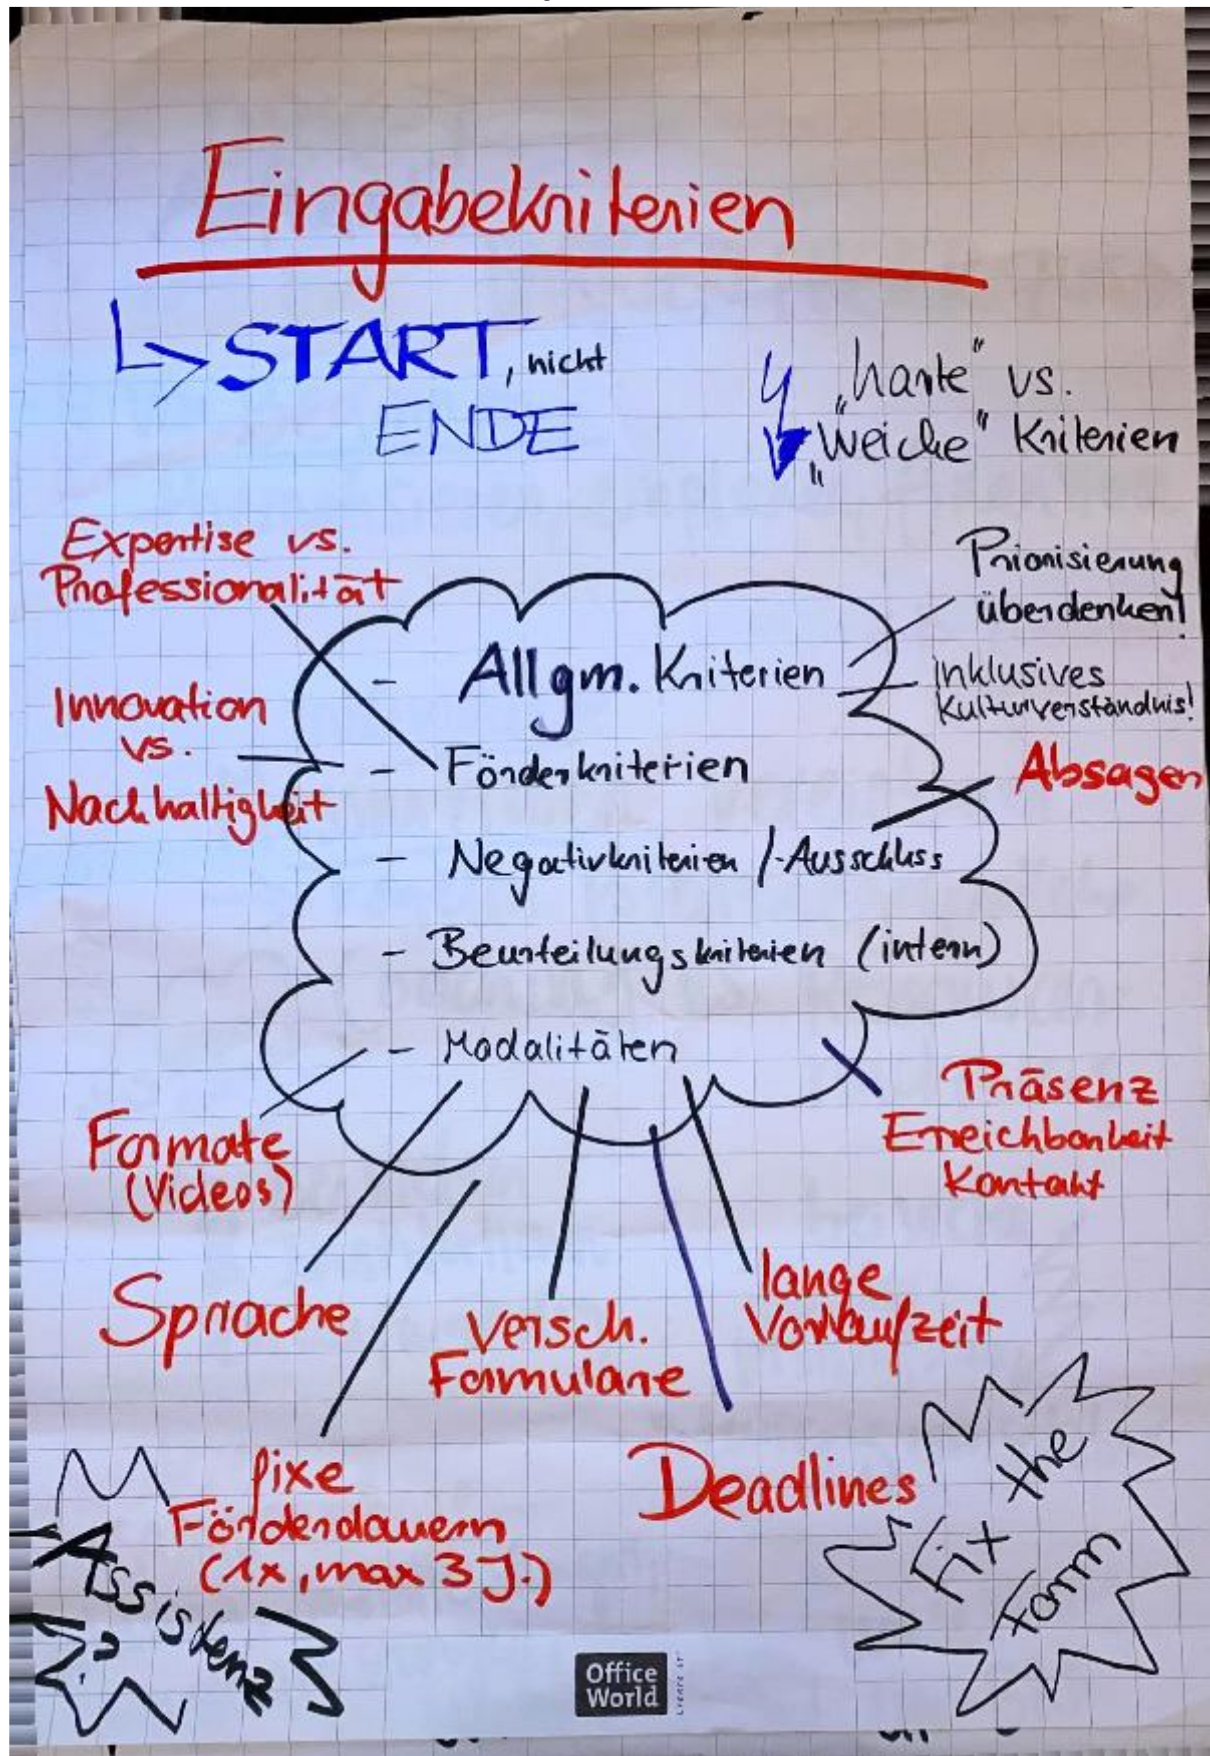 Eingabekriterien
START, nicht
ENDE
„harte" vs.
„Weiche" Kriterien
Expertise vs.
Professionalität
Priorisierung
überdenken!
- Allgm. Kriterien
inklusives
Kulturverständnis!
Innovation
vs.
Nachhaltigkeit
- Förderkriterien
Absagen
- Negativkriterien /-Ausschluss
- Beurteilungskriterien (intern)
- Modalitäten
Präsenz
Erreichbarkeit
Kontakt
Formate
(Videos)
Sprache
versch.
Formulare
lange
Vorlaufzeit
fixe
Förderdauern
(1x, max 3 J.)
Deadlines
Assistenz
?
Fix the
Form
Office
World